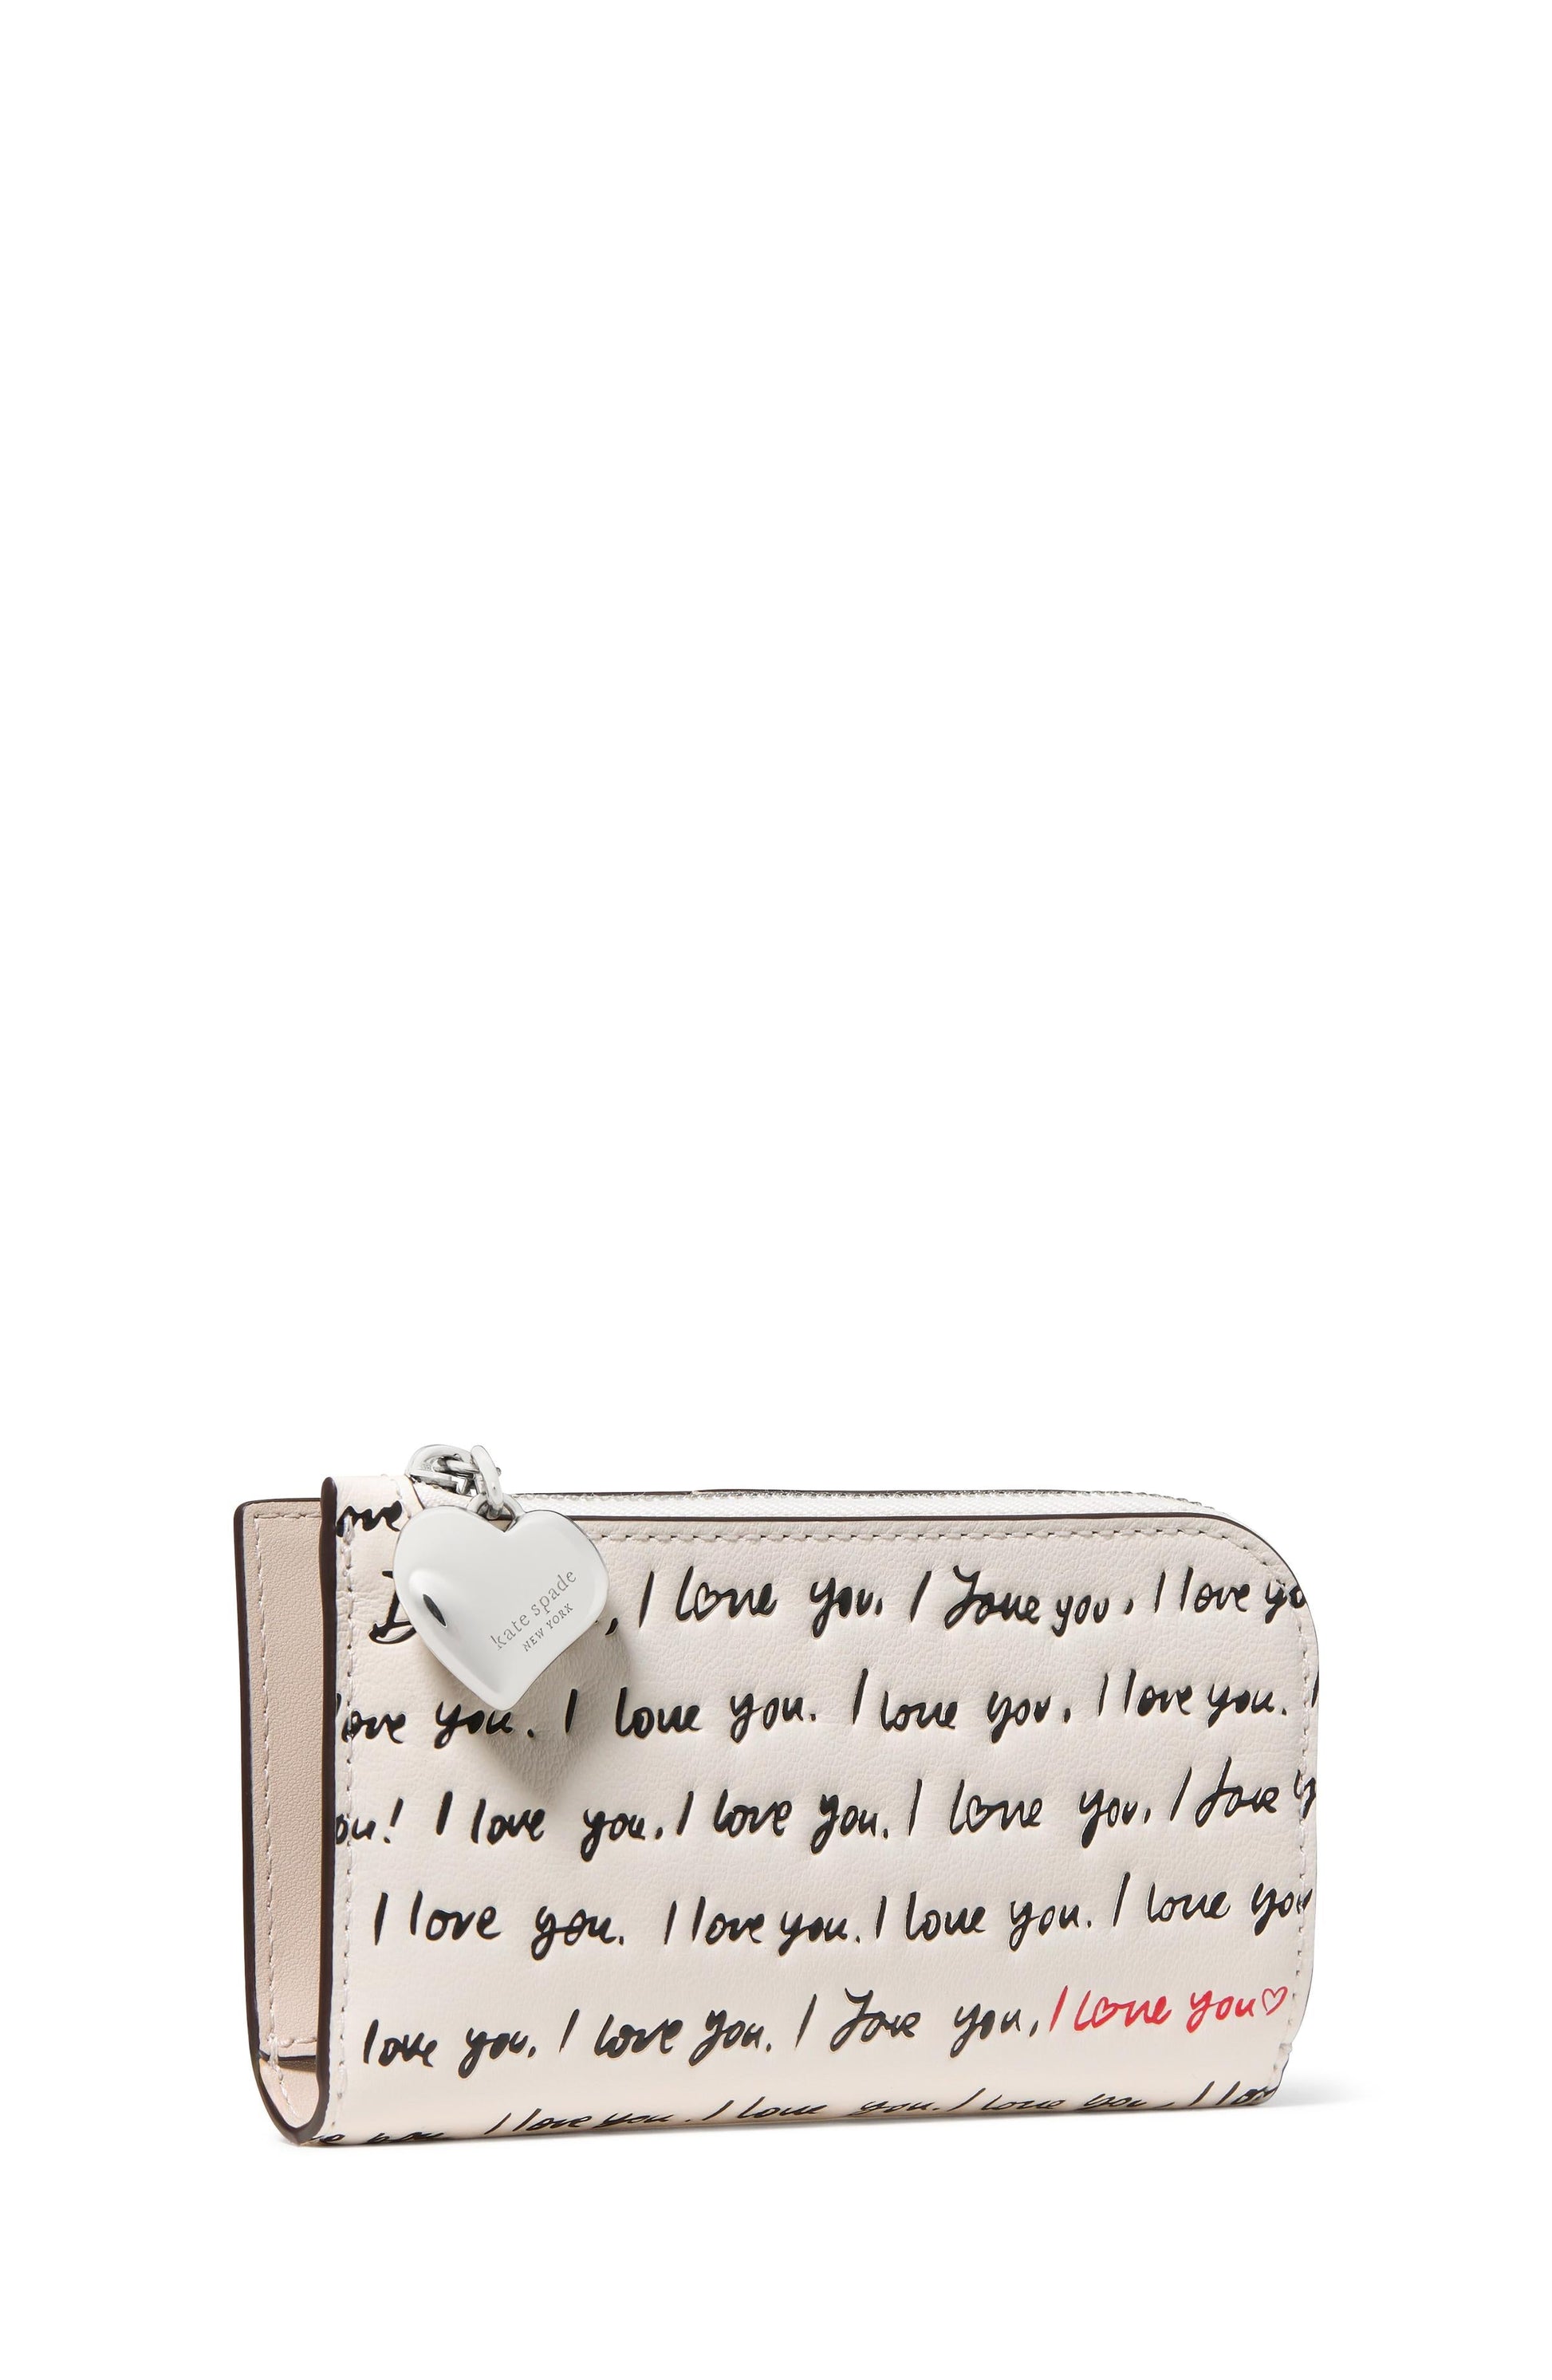 ove
kate spade
NEW YORK
, I love you. I love you. I love yo
love you. I love you. I love you. I love you. I
ou! I love you. I love you. I love you. I love y
I love you. I love you. I love you. I love you
love you. I love you. I love you. I love you♡
e you. I love you. I love you. I love you. I lo